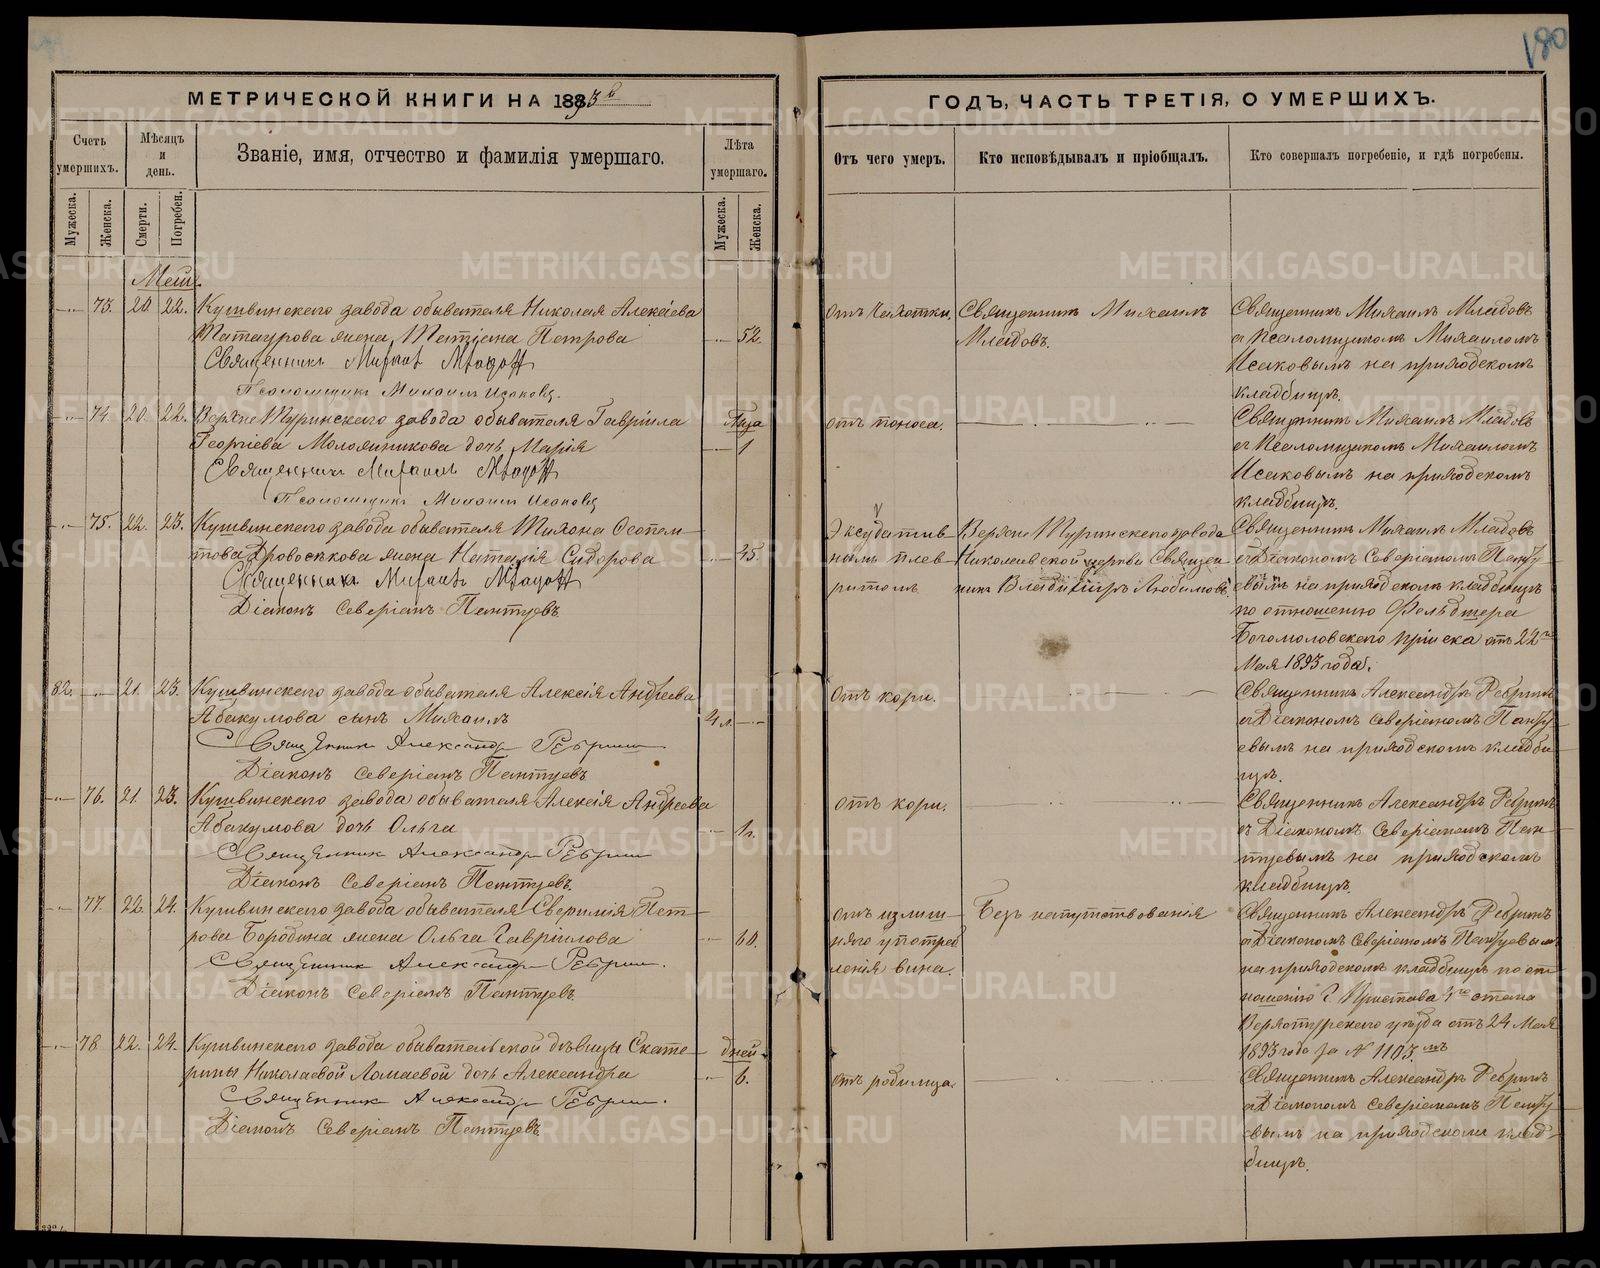 180
МЕТРИЧЕСКОЙ КНИГИ НА 1893 й
ГОДЪ, ЧАСТЬ ТРЕТІЯ, О УМЕРШИХЪ.
Счетъ умершихъ.
Мѣсяцъ и день.
Званіе, имя, отчество и фамилія умершаго.
Лѣта умершаго.
Отъ чего умеръ.
Кто исповѣдывалъ и пріобщалъ.
Кто совершалъ погребеніе, и гдѣ погребены.
Мужеска.
Женска.
Смерти.
Погребен.
Мужеска.
Женска.
Маій.
73. 20. 22. Кушвинскаго завода обывателя Николая Алексѣева
жена Татіана Петрова 52.
Священникъ Михаилъ Младовъ
Псаломщикъ Михаилъ Исаковъ.
отъ Чахотки. Священникъ Михаилъ
Младовъ.
Священникъ Михаилъ Младовъ
съ Псаломщикомъ Михаиломъ
Исаковымъ на приходскомъ
кладбищѣ.
74. 20. 22. Верхне Туринскаго завода обывателя Гавріила Года
Георгіева Моложникова дочь Марія 1
Священникъ Михаилъ Младовъ
Псаломщикъ Михаилъ Исаковъ
отъ поноса.
Священникъ Михаилъ Младовъ
съ Псаломщикомъ Михаиломъ
Исаковымъ на приходскомъ
кладбищѣ.
75. 22. 23. Кушвинскаго завода обывателя Тихона
жена Наталія Сидорова 45.
Священникъ Михаилъ Младовъ
Діаконъ Северіанъ Пантуевъ
Эксудатив
нымъ плев
ритомъ
Верхне Туринскаго завода
Николаевской церкви Священ
никъ Владиміръ Любимовъ.
Священникъ Михаилъ Младовъ
съ Діакономъ Северіаномъ Панту
евымъ на приходскомъ кладбищѣ
по отношенію Фельдшера
Богомоловскаго пріиска отъ 22го
Мая 1893 года.
82. 21. 23. Кушвинскаго завода обывателя Алексія Андреева
Абакумова сынъ Михаилъ 4 л.
Священникъ Александръ Ребринъ
Діаконъ Северіанъ Пантуевъ
Отъ кори.
Священникъ Александръ Ребринъ
съ Діакономъ Северіаномъ Панту
евымъ на приходскомъ кладби
щѣ.
76. 21. 23. Кушвинскаго завода обывателя Алексія Андреева
Абакумова дочь Ольга 1 г.
Священникъ Александръ Ребринъ
Діаконъ Северіанъ Пантуевъ.
отъ кори.
Священникъ Александръ Ребринъ
съ Діакономъ Северіаномъ Пан
туевымъ на приходскомъ
кладбищѣ.
77. 22. 24. Кушвинскаго завода обывателя Пет
рова Бородина жена Ольга Гавріилова 60.
Священникъ Александръ Ребринъ.
Діаконъ Северіанъ Пантуевъ.
отъ излиш
няго употреб
ленія вина.
Безъ напутствованія
Священникъ Александръ Ребринъ
съ Діакономъ Северіаномъ Пантуевымъ
на приходскомъ кладбищѣ по от
ношенію Г. Пристава 4го стана
Верхотурскаго уѣзда отъ 24 Мая
1893 года за N 1103.мъ
78. 22. 24. Кушвинскаго завода обывательской дѣвицы Екате дней
рины Николаевой Ломаевой дочь Александра 6.
Священникъ Александръ Ребринъ.
Діаконъ Северіанъ Пантуевъ.
отъ родимца.
Священникъ Александръ Ребринъ
съ Діакономъ Северіаномъ Панту
евымъ на приходскомъ клад
бищѣ.
METRIKI.GASO-URAL.RU